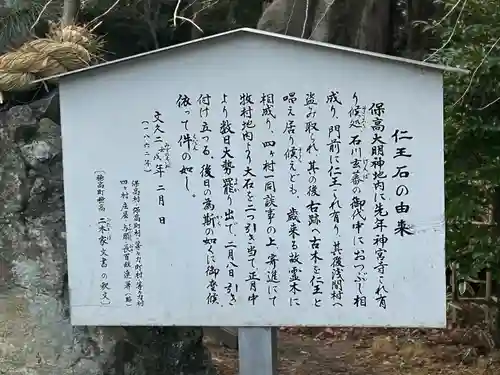 仁王石の由来
保高大明神地内に先年神宮寺これ有
り候処 石川玄蕃の御代中に出つぶし相
成り、門前に仁王これ有り、其後浅間村へ
盗み取られ、其の後右跡へ古木を仁王と
唱え居り候えども、歳来る故霊木に
相成り、四ヶ村一同談事の上寄進にて
牧村地内より大石を二つ引き当て正月中
より数日大勢罷り出で、二月八日引き
付け立つる。後日の為斯の如くに御座候。
依って件の如し。
文久二戌年二月日
(一八六二年)
保高村(穂高町村・等々力町村・等々力村
四ヶ村庄屋、与頭、長百姓連署(略)
(穂高町穂高 二木家文書の釈文)